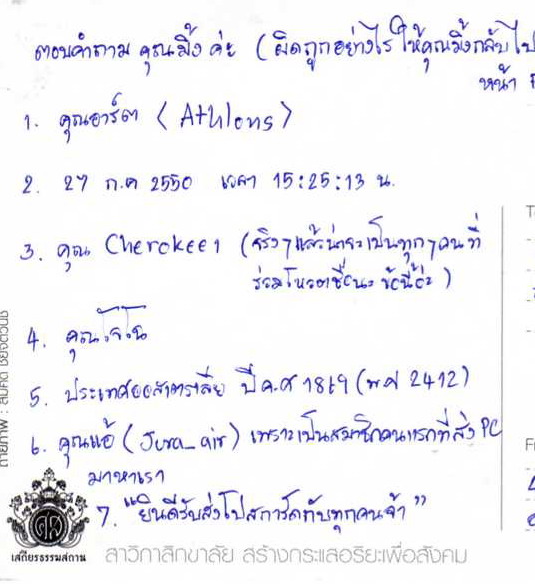 ตอบคำถาม คุณมิ้ง ค่ะ (ผิดถูกอย่างไร ให้คุณมิ้งกลับไป
หน้า
1. คุณอาร์ต (Athlons)
2. 27 ก.ค 2550 เวลา 15:25:13 น.
3. คุณ Cherokee1 (จริงๆแล้วน่าจะเป็นทุกๆคนที่
ร่วมโหวตชื่อนะ ข้อนี้อ่ะ)
4. คุณโจโน
5. ประเทศออสเตรเลีย ปี ค.ศ 1869 (พ.ศ 2412)
6. คุณแอ้ (Jura_air) เพราะเป็นสมาชิกคนแรกที่ส่ง PC
มาหาเรา
7. "ยินดีรับส่งโปสการ์ดกับทุกคนจ้า"
เสถียรธรรมสถาน
สาวิกาสิกขาลัย สร้างกระแสอริยะเพื่อสังคม